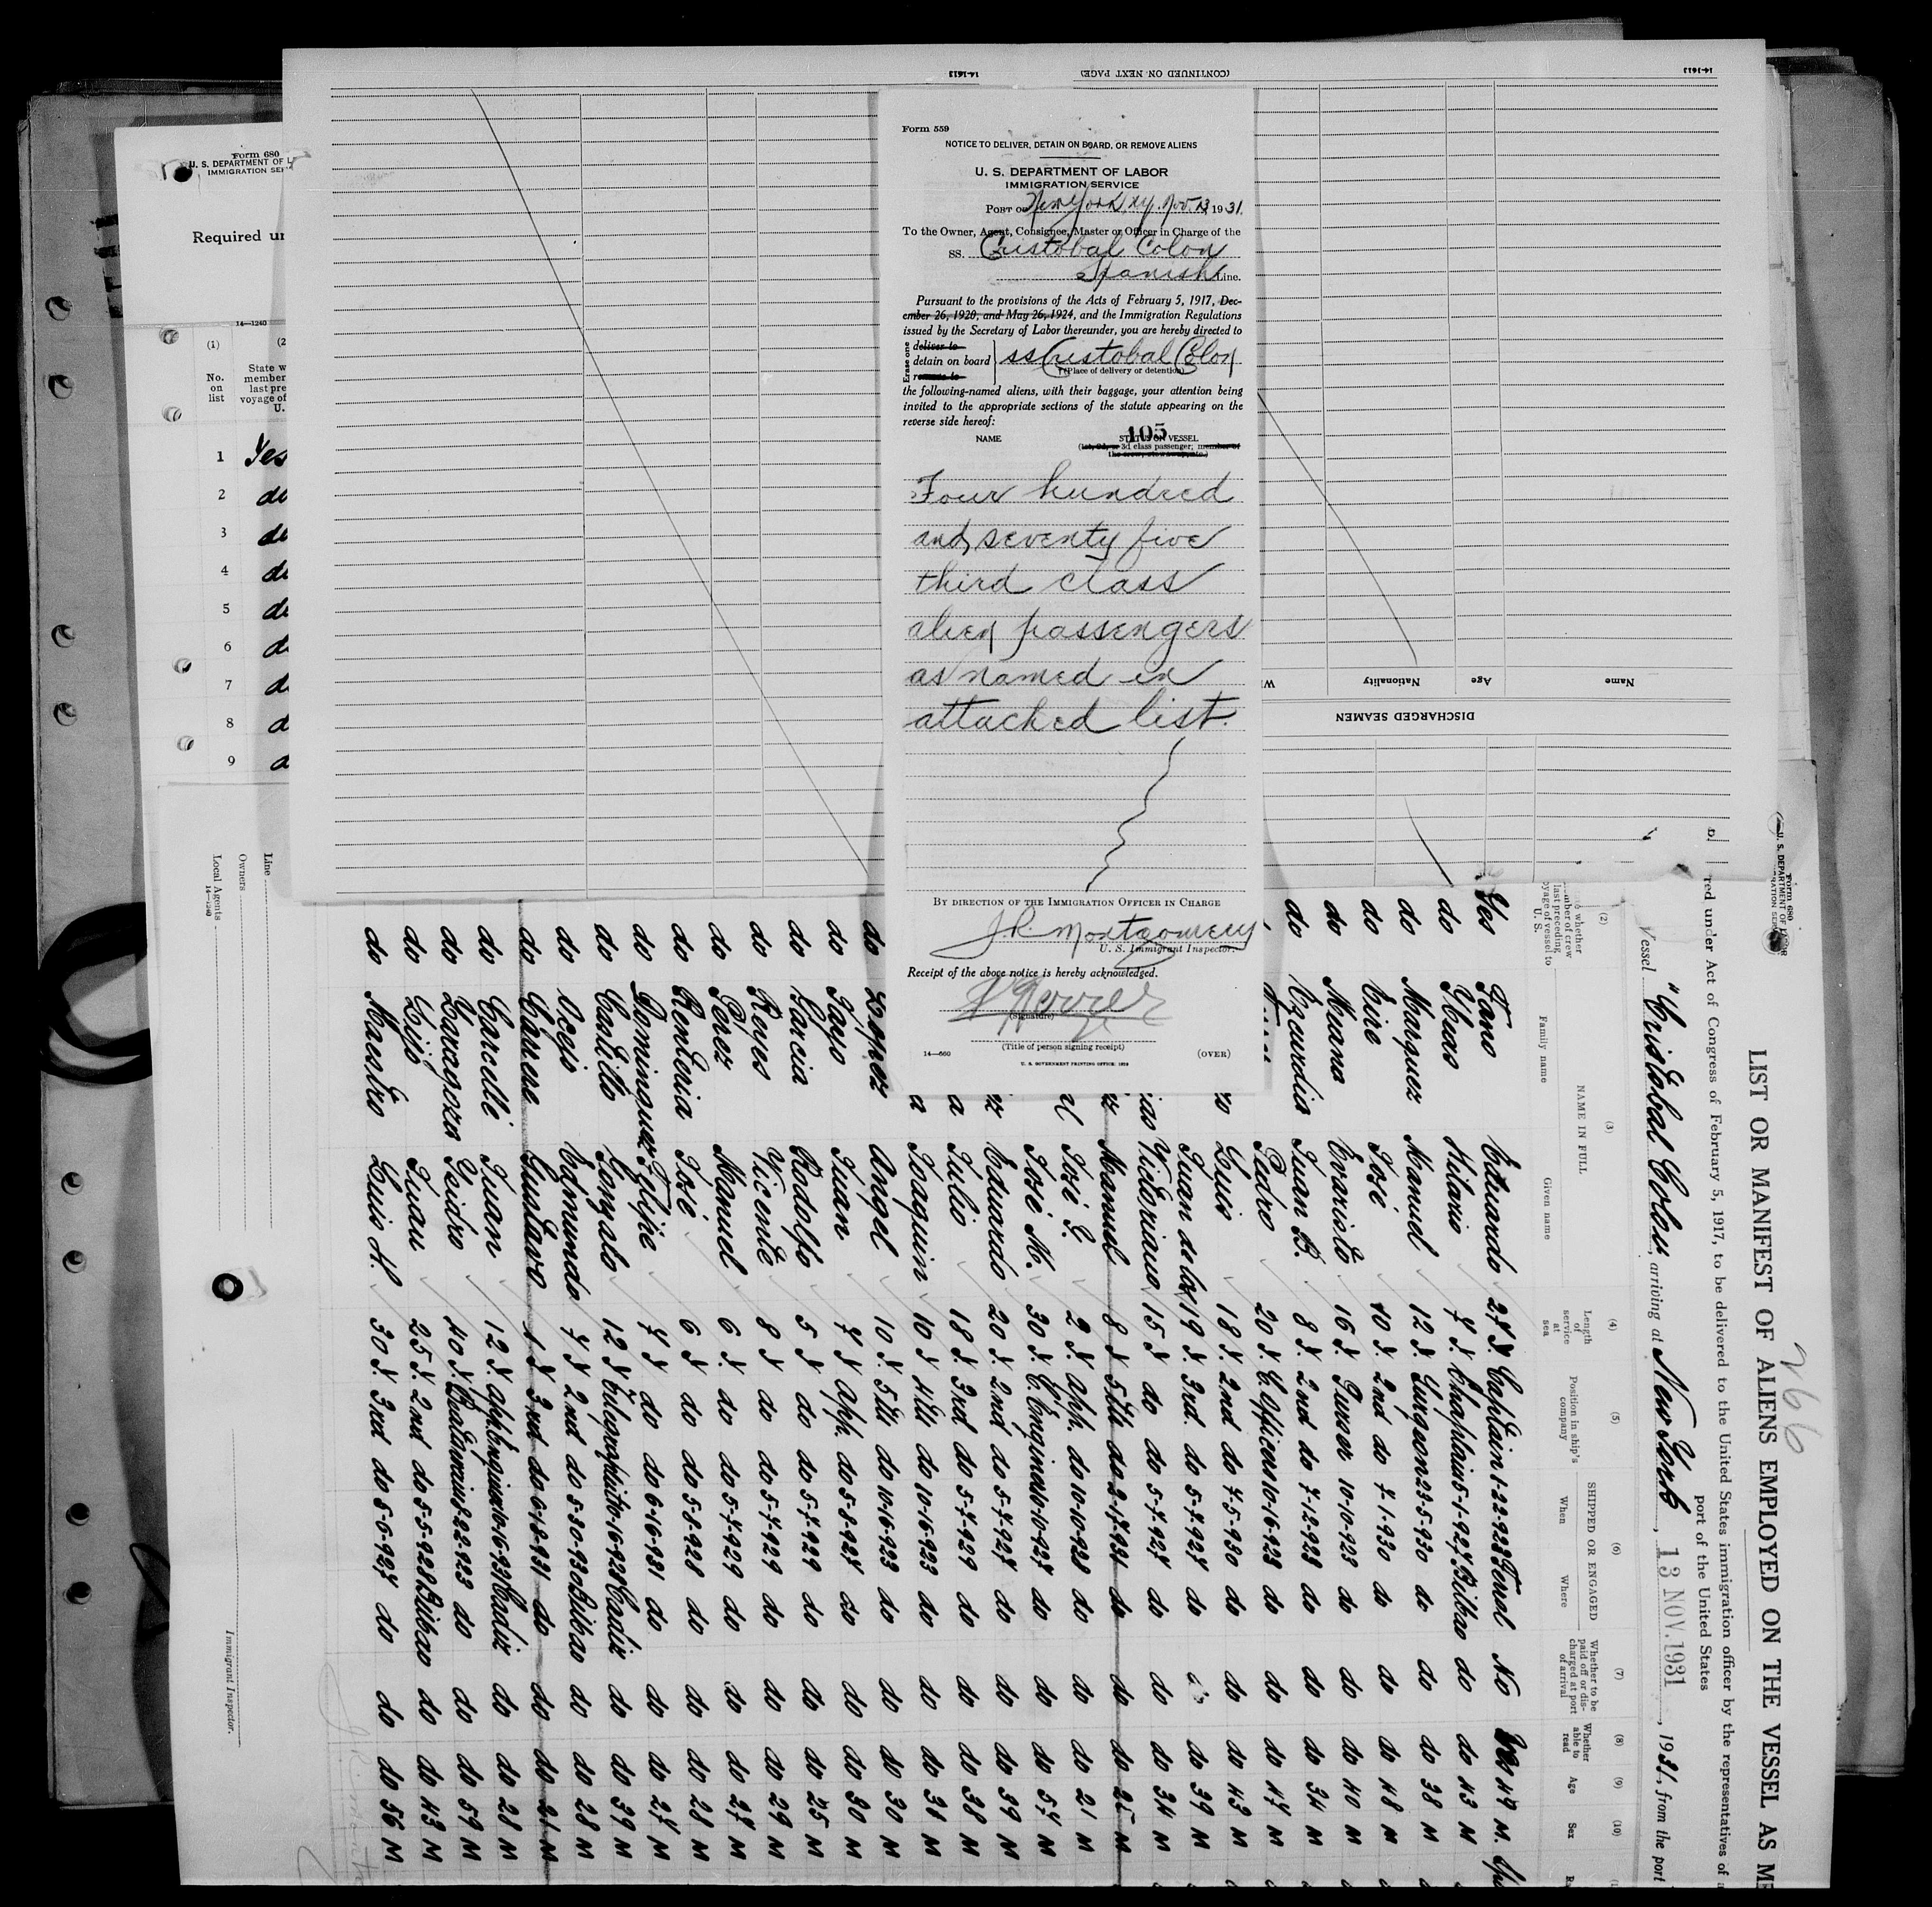 14-1613
(CONTINUED ON NEXT PAGE)
14-1613
Form 680
U. S. DEPARTMENT OF L
IMMIGRATION SER
Required un
14—1240
(1)
(2
No.
on
list
State w
member
last pre
voyage of
U.
1 Yes
2 do
3 do
4 do
5 do
6 d
7 d
8 d
9 d
Line
Owners
Local Agents
14—1240
Immigrant Inspector.
Form 559
NOTICE TO DELIVER, DETAIN ON BOARD, OR REMOVE ALIENS
U. S. DEPARTMENT OF LABOR
IMMIGRATION SERVICE
PORT OF New York Ny. Nov. 13 1931.
To the Owner, Agent, Consignee, Master or Officer in Charge of the
SS. Cristobal Colon
Spanish Line.
Pursuant to the provisions of the Acts of February 5, 1917, Dec-
ember 26, 1920, and May 26, 1924, and the Immigration Regulations
issued by the Secretary of Labor thereunder, you are hereby directed to
Erase one
deliver to
detain on board
remove to
ss Cristobal Colon
(Place of delivery or detention)
the following-named aliens, with their baggage, your attention being
invited to the appropriate sections of the statute appearing on the
reverse side hereof:
105
NAME STATUS ON VESSEL
(1st, 2d, or 3d class passenger; member of
the crew, stowaway, etc.)
Four hundred
and seventy five
third class
alien passengers
as named in
attached list.
BY DIRECTION OF THE IMMIGRATION OFFICER IN CHARGE
J.R. Montgomery
U. S. Immigrant Inspector.
Receipt of the above notice is hereby acknowledged.
(Signature)
(Title of person signing receipt)
14—660
(OVER)
U. S. GOVERNMENT PRINTING OFFICE: 1929
Name
Age
Nationality
W
DISCHARGED SEAMEN
266
Form 680
U. S. DEPARTMENT OF
LIST OR MANIFEST OF ALIENS EMPLOYED ON THE VESSEL AS ME
red under Act of Congress of February 5, 1917, to be delivered to the United States immigration officer by the representatives of a
port of the United States
Vessel "Cristobal Colon, arriving at New York, 13 NOV. 1931, 1931, from the port
(2) (3) (4) (5) (6) (7) (8) (9) (10)
whether
mber of crew
last preceding
oyage of vessel to
U. S.
NAME IN FULL
Family name
Given name
Length
of
service
at
sea
Position in ship's
company
SHIPPED OR ENGAGED
When
Where
Whether to be
paid off or dis-
charged at port
of arrival
Whether
able to
read
Age
Sex
Yes Fano Eduardo 27 Y. Captain 1-22-928 Ferrol No Yes 49 M.
do Ybeas Hilario 7 Y. Chaplain 5-1-927 Bilbao do do 43 M
do Marquez Manuel 12 Y. Surgeon 23-5-930 do do do 38 M
do Eire José 10 Y. 2nd do 7-1-930 do do do 48 M
do Muana Evaristo 16 Y. Purser 10-10-923 do do do 40 M
do Ezcurdia Juan B. 8 Y. 2nd do 7-12-928 do do do 34 M
Pedro 20 Y. C. Officer 10-16-923 do do do 47 M
Luis 18 Y. 2nd do 7-5-930 do do do 43 M
Juan de la 19 Y. 3rd. do 5-7-927 do do 39 M
Victoriano 15 Y. do do 5-7-927 do do do 34 M
Manuel 8 Y 5th do 2-17-931 do do do 25 M
José L. 2 Y. App. do 10-10-928 do do do 21 M
José M. 30 Y. C. Engineer 10-10-927 do do do 54 M
Eduardo 20 Y. 2nd do 5-7-927 do do do 39 M
Julio 18 Y. 3rd do 5-7-929 do do do 38 M
Joaquin 10 Y 4th do 10-16-923 do do do 31 M
do Lopez Angel 10 Y. 5th do 10-16-923 do do do 30 M
do Tayo Juan 7 Y App. do 5-8-927 do do do 30 M
do Garcia Rodolfo 5 Y do do 5-7-929 do do do 25 M
do Reyes Vicente 8 Y do do 5-7-929 do do do 29 M
do Perez Manuel 6 Y. do do 5-7-929 do do do 27 M
do Renteria José 6 Y do do 5-8-928 do do do 28 M
do Dominguez Felipe 7 Y do do 6-16-931 do do do 27 M
do Castillo Gonzalo 12 Y Telegraphist 10-16-928 Cadiz do do 39 M
do Ocejo Edmundo 7 Y 2nd do 5-30-930 Bilbao do do 28 M
do Carrere Gustavo 1 Y 3rd do 6-18-931 do do do 21 M
do Carcelle Juan 12 Y. App. Engineer 10-16-931 Cadiz do do 28 M
do Zaragoza Isidro 40 Y. Boatswain 8-22-923 do do do 59 M
do Juan 25 Y. 2nd do 5-5-928 Bilbao do do 43 M
do Maestro Luis A. 30 Y. 3rd do 5-6-927 do do do 56 M